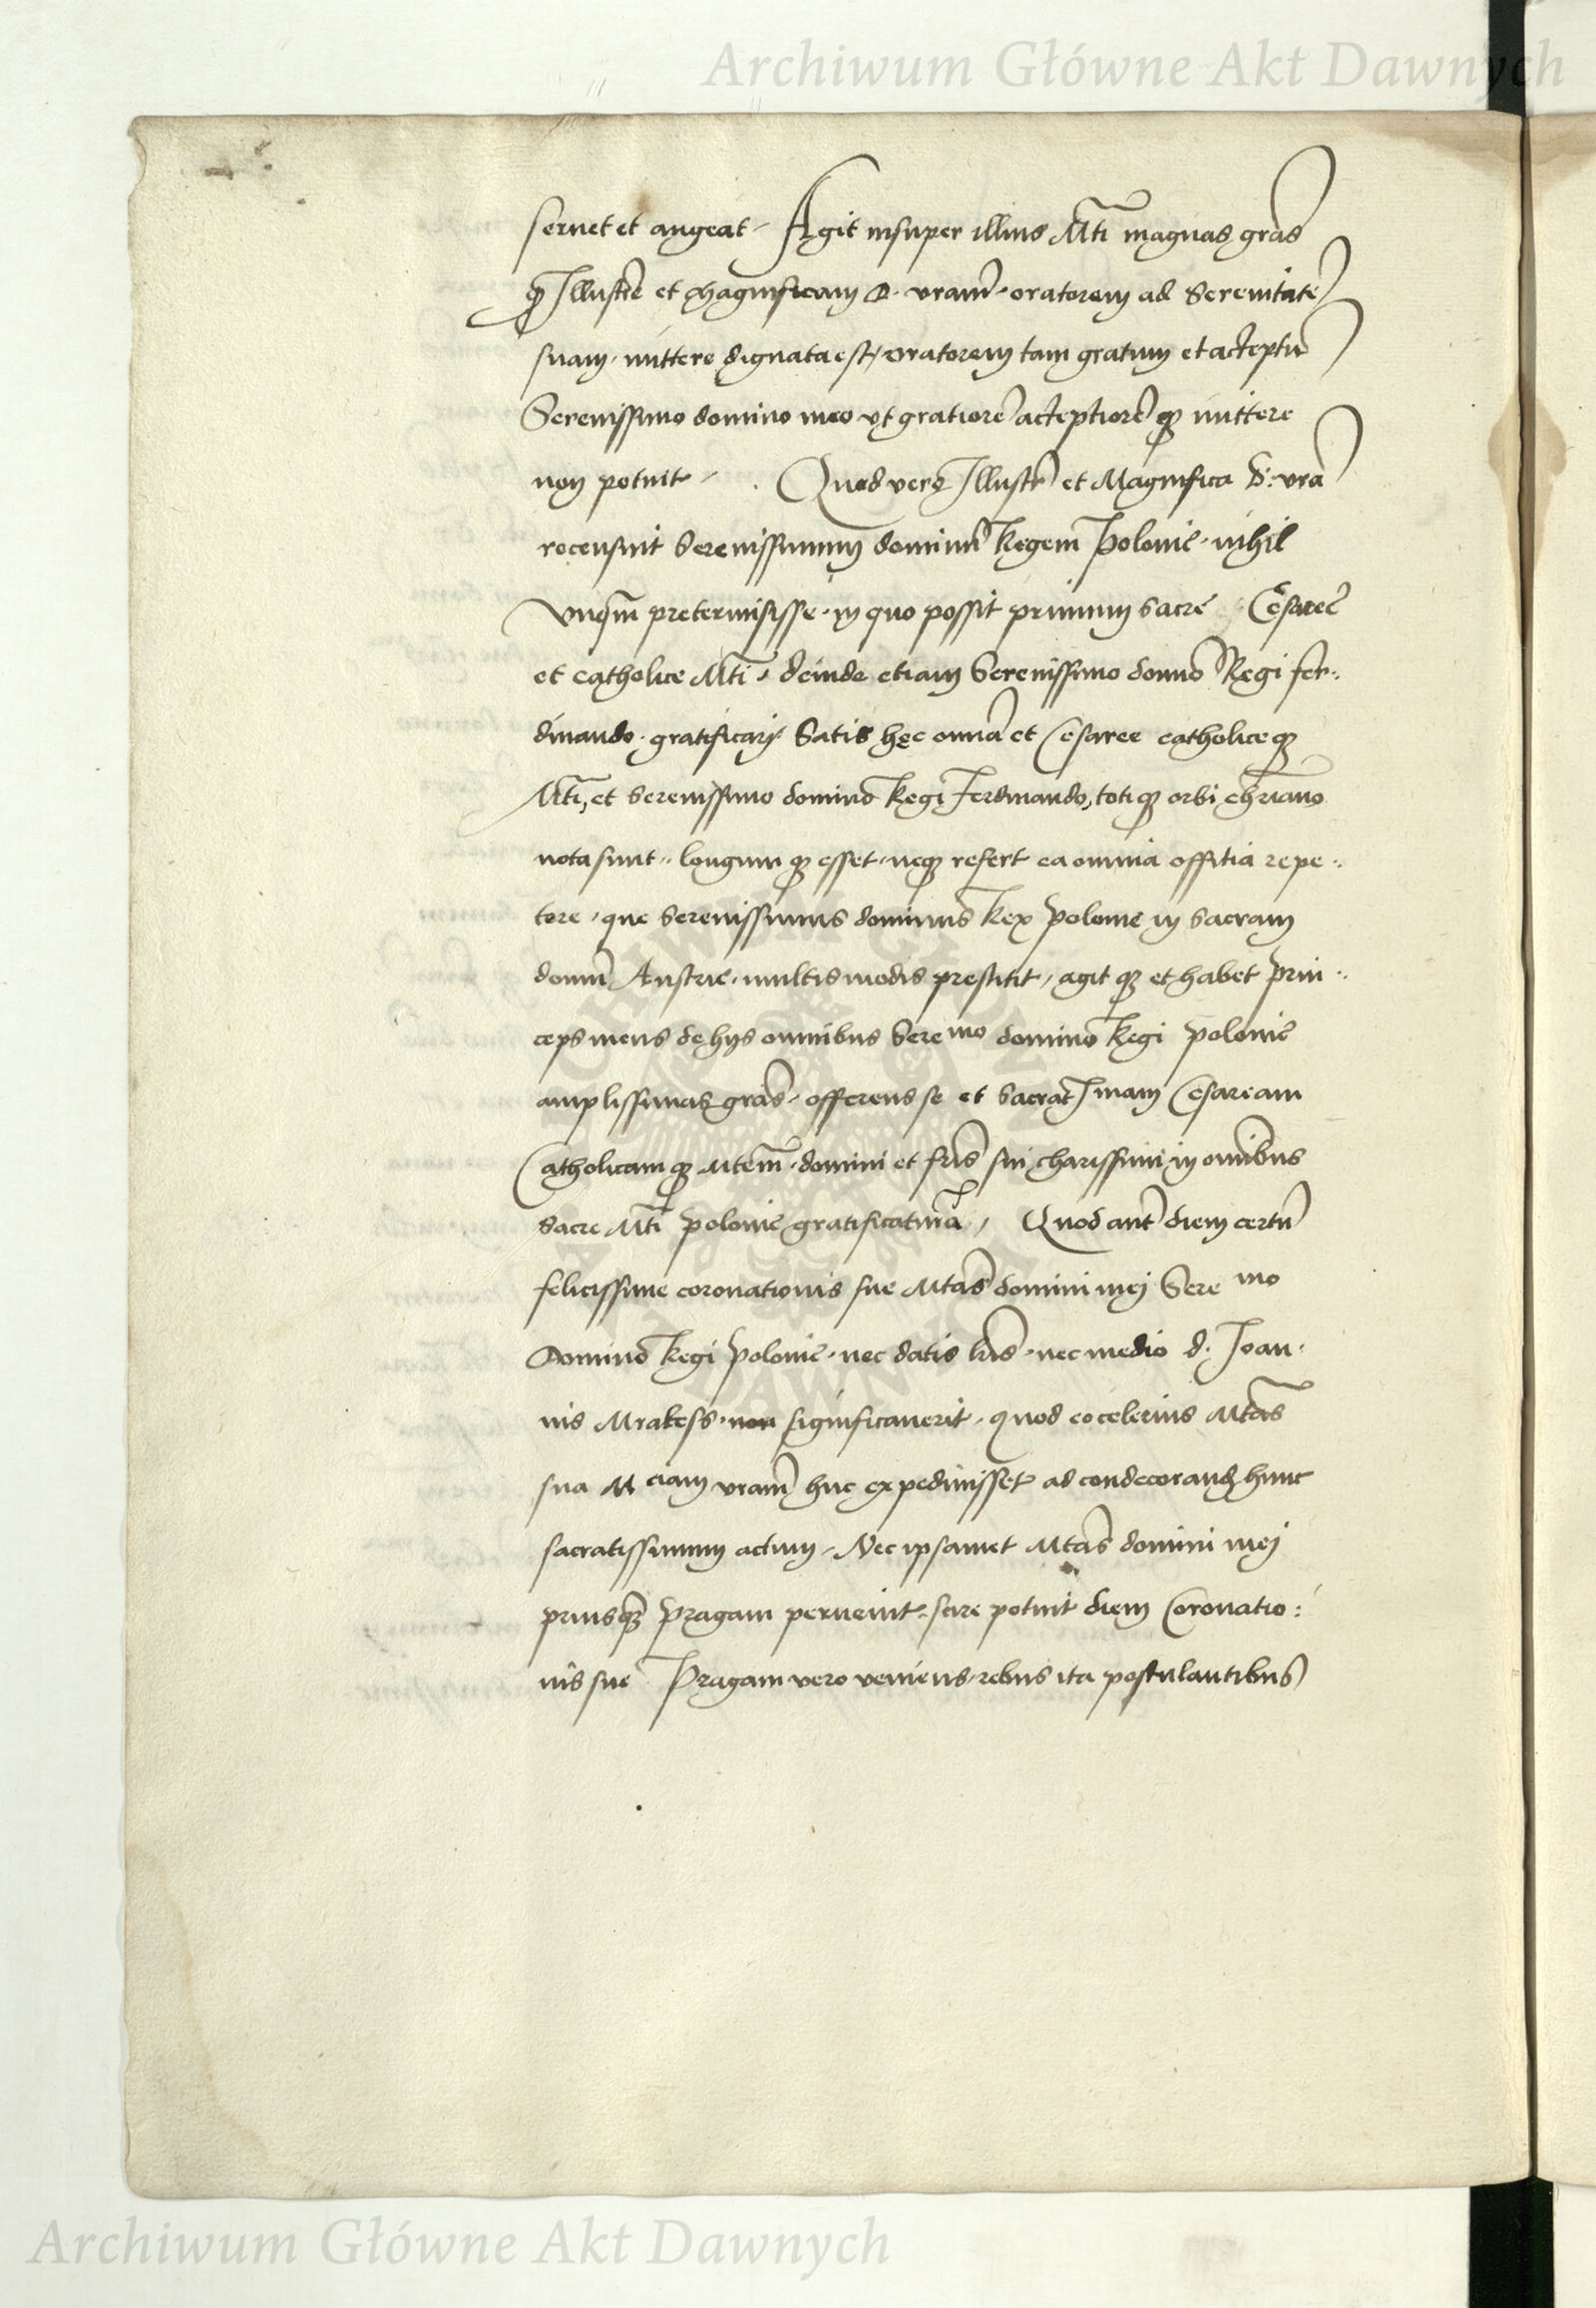 Archiwum Główne Akt Dawnych
seruet et augeat. Agit insuper illius Mti magnas gras
q Illustre et Magnificam D. vram oratorem ad Serenitate
suam mittere dignata est, oratorem tam gratum et acceptu
Serenissimo domino meo vt gratiore acceptiore q mittere
non potuit. Quod vero Illustr et Magnifica D: vra
recensuit Serenissimum dominu Regem Polonie nihil
vnqm pretermisisse in quo possit primum Sacre Cesaree
et catholice Mti, deinde etiam Serenissimo domno Regi Fer:
dinando gratificari Satis hęc omnia et Cesaree catholiceq
Mti, et Serenissimo domino Regi Ferdinando, totiq orbi chriano
nota sunt, longum q esset, neq refert ea omnia offitia repe:
tere, que Serenissimus dominus Rex Polonie in Sacram
domu Austrie multis modis prestitit, agit q et habet prin:
ceps meus de hijs omnibus Sere mo domino Regi Polonie
amplissimas gras, offerens se et Sacrat Imam Cesaream
Catholicam q Mtem domini et fris sui charissimi in omibus
Sacre Mti Polonie gratificatura, Quod ant diem certu
felicissime coronationis sue Mtas domini mei Sere mo
Domino Regi Polonie nec datis lris nec medio d. Joan:
nis Mrakess non significauerit, quod eo celerius Mtas
sua M ciam vram huc expediuisset ad condecorand hunc
sacratissimum actum, Nec ipsamet Mtas domini mei
priusq Pragam peruenit, scire potuit diem Coronatio:
nis sue Pragam vero veniens, rebus ita postulantibus
Archiwum Główne Akt Dawnych